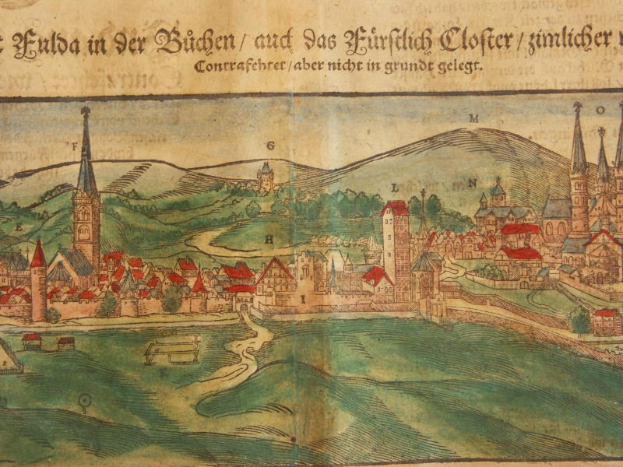 Fulda in der Bůchen / auch das Fürstlich Closter / zimlicher
Contrafehtet / aber nicht in grundt gelegt.
F G M O
E L N
H
I